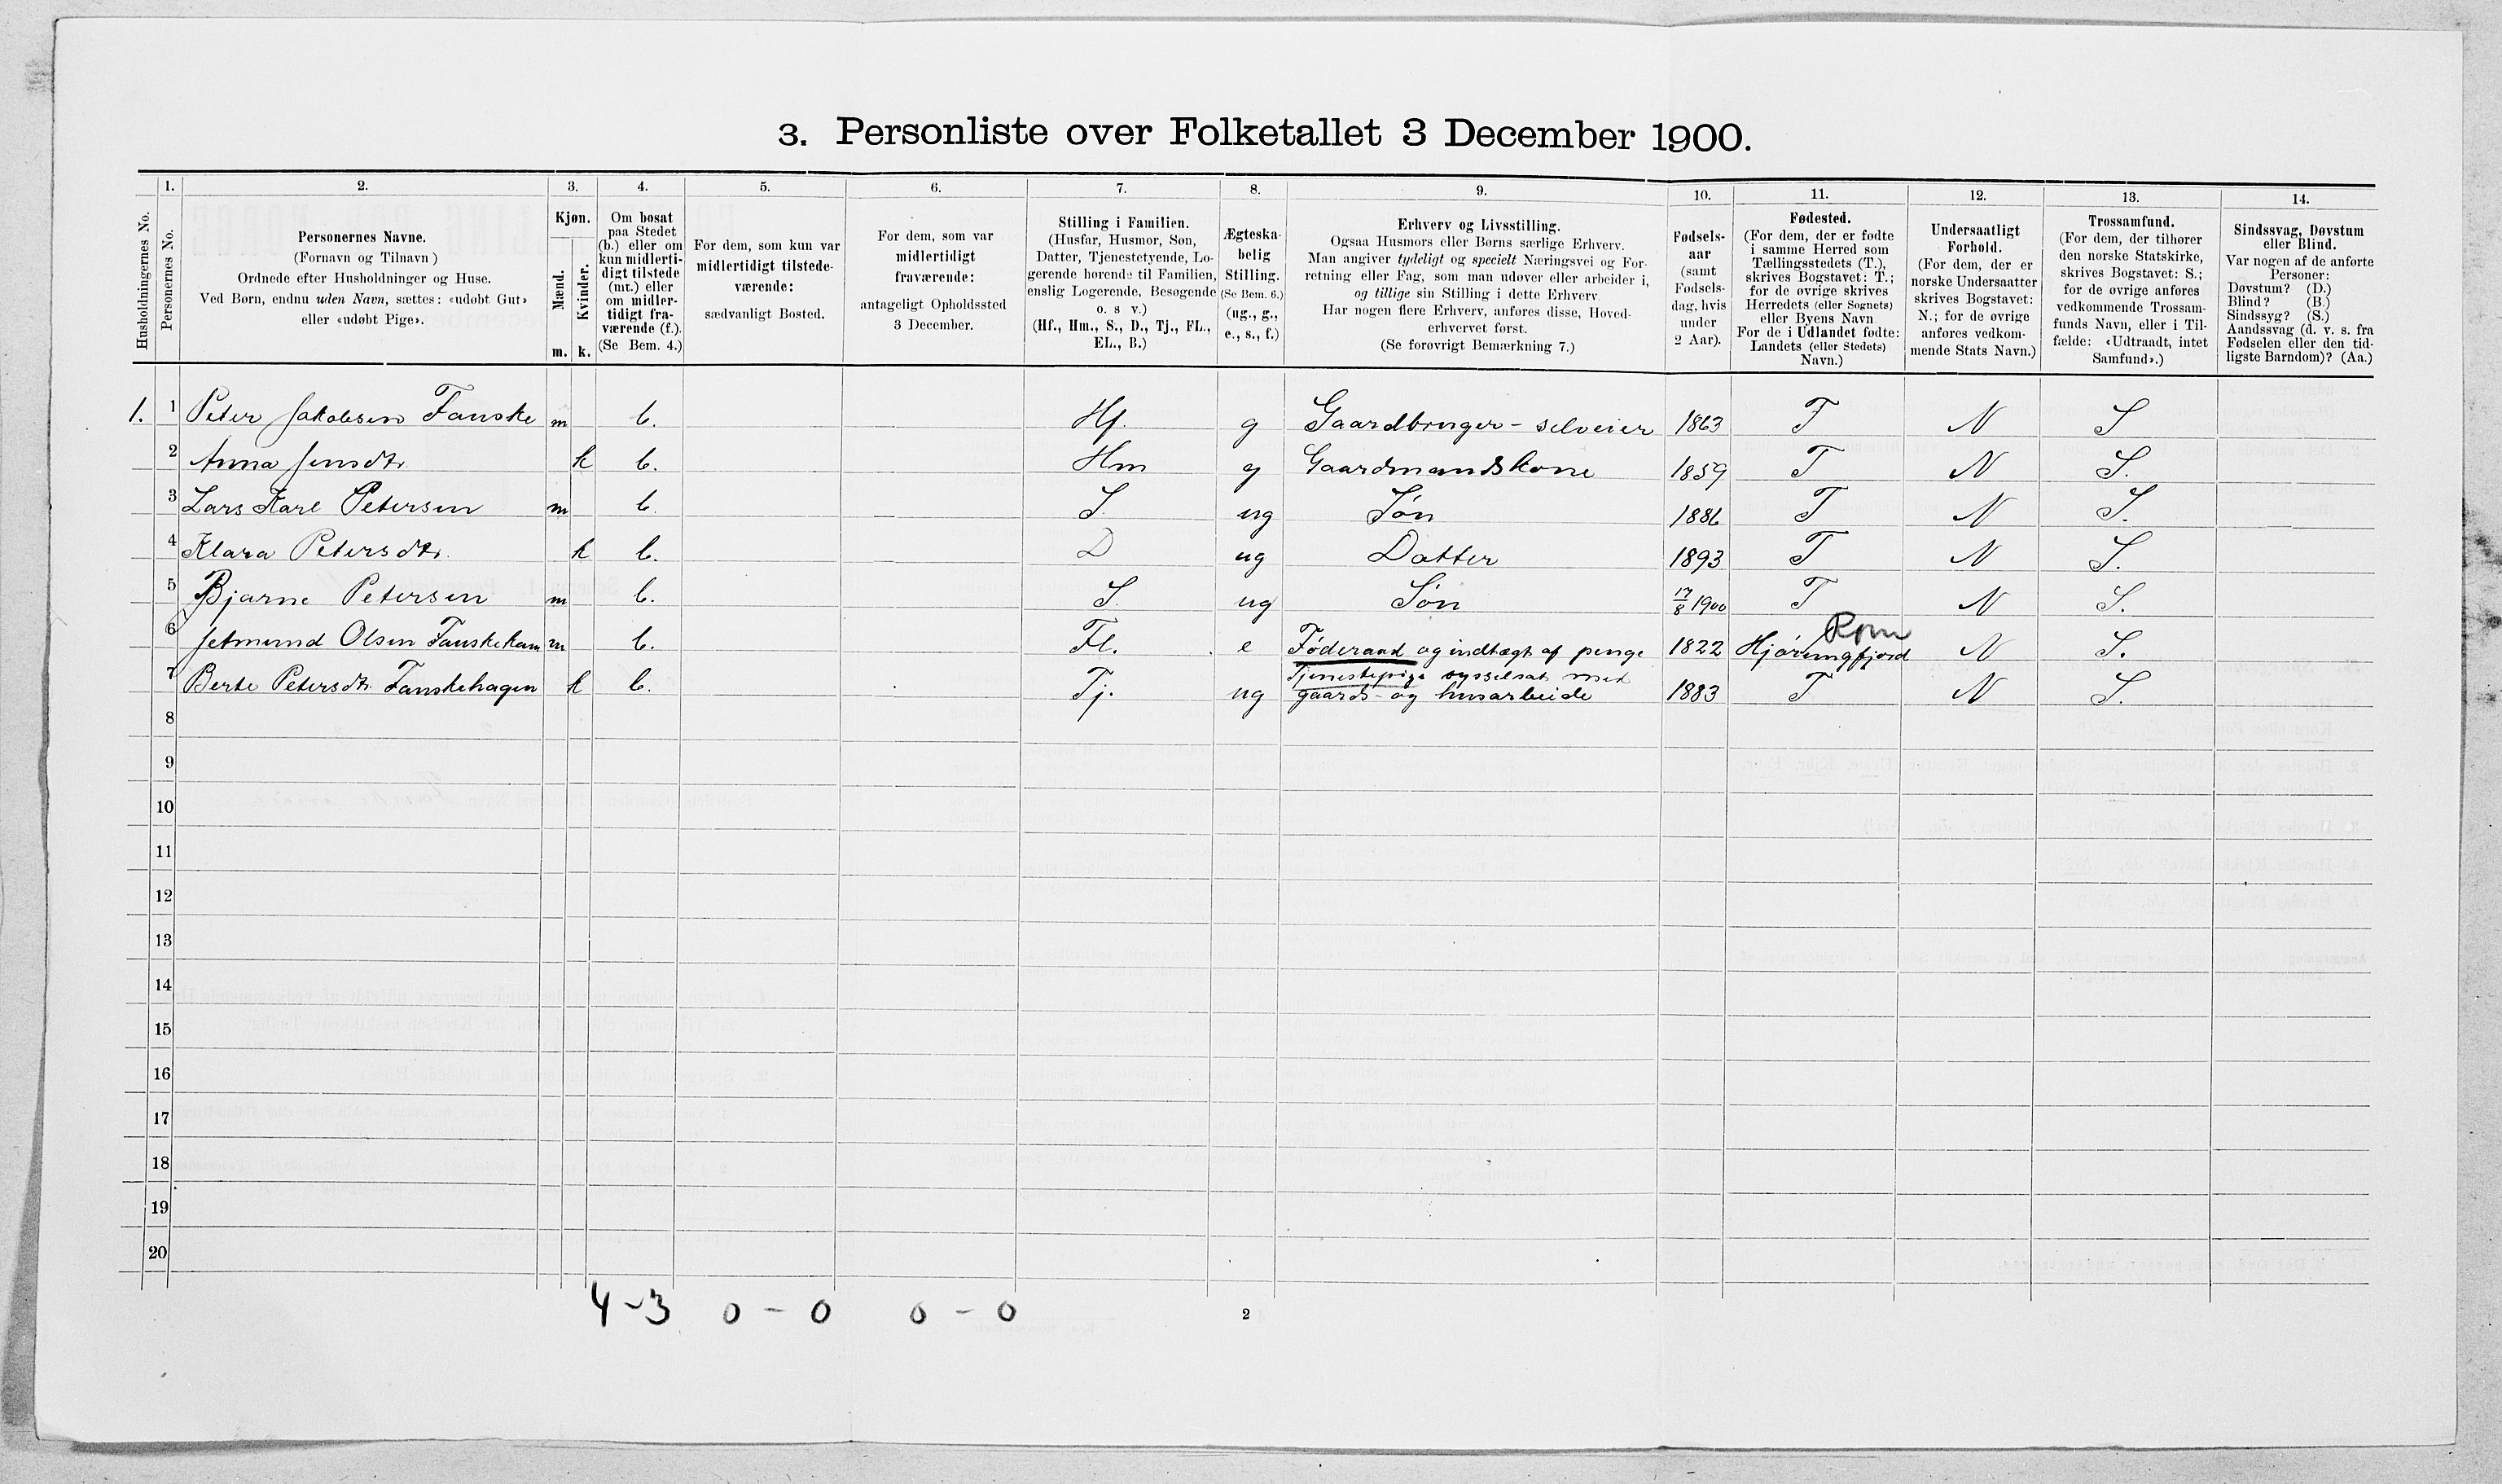 3. Personliste over Folketallet 3 December 1900.
Husholdningernes No.
1. Personernes No.
2. Personernes Navne.
(Fornavn og Tilnavn )
Ordnede efter Husholdninger og Huse.
Ved Børn, endnu uden Navn, sættes: «udøbt Gut»
eller «udøbt Pige».
3. Kjøn.
Mænd. m.
Kvinder. k.
4. Om bosat
paa Stedet
(b.) eller om
kun midlerti-
digt tilstede
(mt.) eller
om midler-
tidigt fra-
værende (f.).
(Se Bem. 4.)
5. For dem, som kun var
midlertidigt tilstede-
værende:
sædvanligt Bosted.
6. For dem, som var
midlertidigt
fraværende:
antageligt Opholdssted
3 December.
7. Stilling i Familien.
(Husfar, Husmor, Søn,
Datter, Tjenestetyende, Lo-
gerende hørende til Familien,
enslig Logerende, Besøgende
o. s v.)
(Hf., Hm., S., D., Tj., FL.,
EL., B.)
8. Ægteska-
belig
Stilling.
(Se Bem. 6.)
(ug., g.,
e., s., f.)
9. Erhverv og Livsstilling.
Ogsaa Husmors eller Børns særlige Erhverv.
Man angiver tydeligt og specielt Næringsvei og For-
retning eller Fag, som man udøver eller arbeider i,
og tillige sin Stilling i dette Erhverv.
Har nogen flere Erhverv, anføres disse, Hoved-
erhvervet først.
(Se forøvrigt Bemærkning 7.)
10. Fødsels-
aar
(samt
Fødsels-
dag, hvis
under
2 Aar).
11. Fødested.
(For dem, der er fødte
i samme Herred som
Tællingsstedets (T.),
skrives Bogstavet: T.;
for de øvrige skrives
Herredets (eller Sognets)
eller Byens Navn
For de i Udlandet fødte:
Landets (eller Stedets)
Navn.)
12. Undersaatligt
Forhold.
(For dem, der er
norske Undersaatter
skrives Bogstavet:
N.; for de øvrige
anføres vedkom-
mende Stats Navn.)
13. Trossamfund.
(For dem, der tilhører
den norske Statskirke,
skrives Bogstavet: S.;
for de øvrige anføres
vedkommende Trossam-
funds Navn, eller i Til-
fælde: «Udtraadt, intet
Samfund».)
14. Sindssvag, Døvstum
eller Blind.
Var nogen af de anførte
Personer:
Døvstum? (D.)
Blind? (B.)
Sindssyg? (S.)
Aandssvag (d. v. s. fra
Fødselen eller den tid-
ligste Barndom)? (Aa.)
1. 1 Peter Jakobsen Fauske m b. Hf. g Gaardbruger - selveier 1863 T N S
2 Anna Jensdtr. k b. Hm g Gaardmandskone 1859 T N S.
3 Lars Karl Petersen m b. S. ug Søn 1886 T N S.
4 Klara Petersdtr. k b. D ug Datter 1893 T N S.
5 Bjarne Petersen m b. S. ug Søn 17/8 1900 T N S.
6 Jetmund Olsen m b. Fl. e Føderaad og indtægt af penge 1822 Hjørungfjord N S.
7 Berte Petersdtr. Fauskehagen k b. Tj. ug Tjenestepige sysselsat med
gaards- og husarbeide 1883 T N S.
8
9
10
11
12
13
14
15
16
17
18
19
20
4 - 3 0 - 0 0 - 0
2